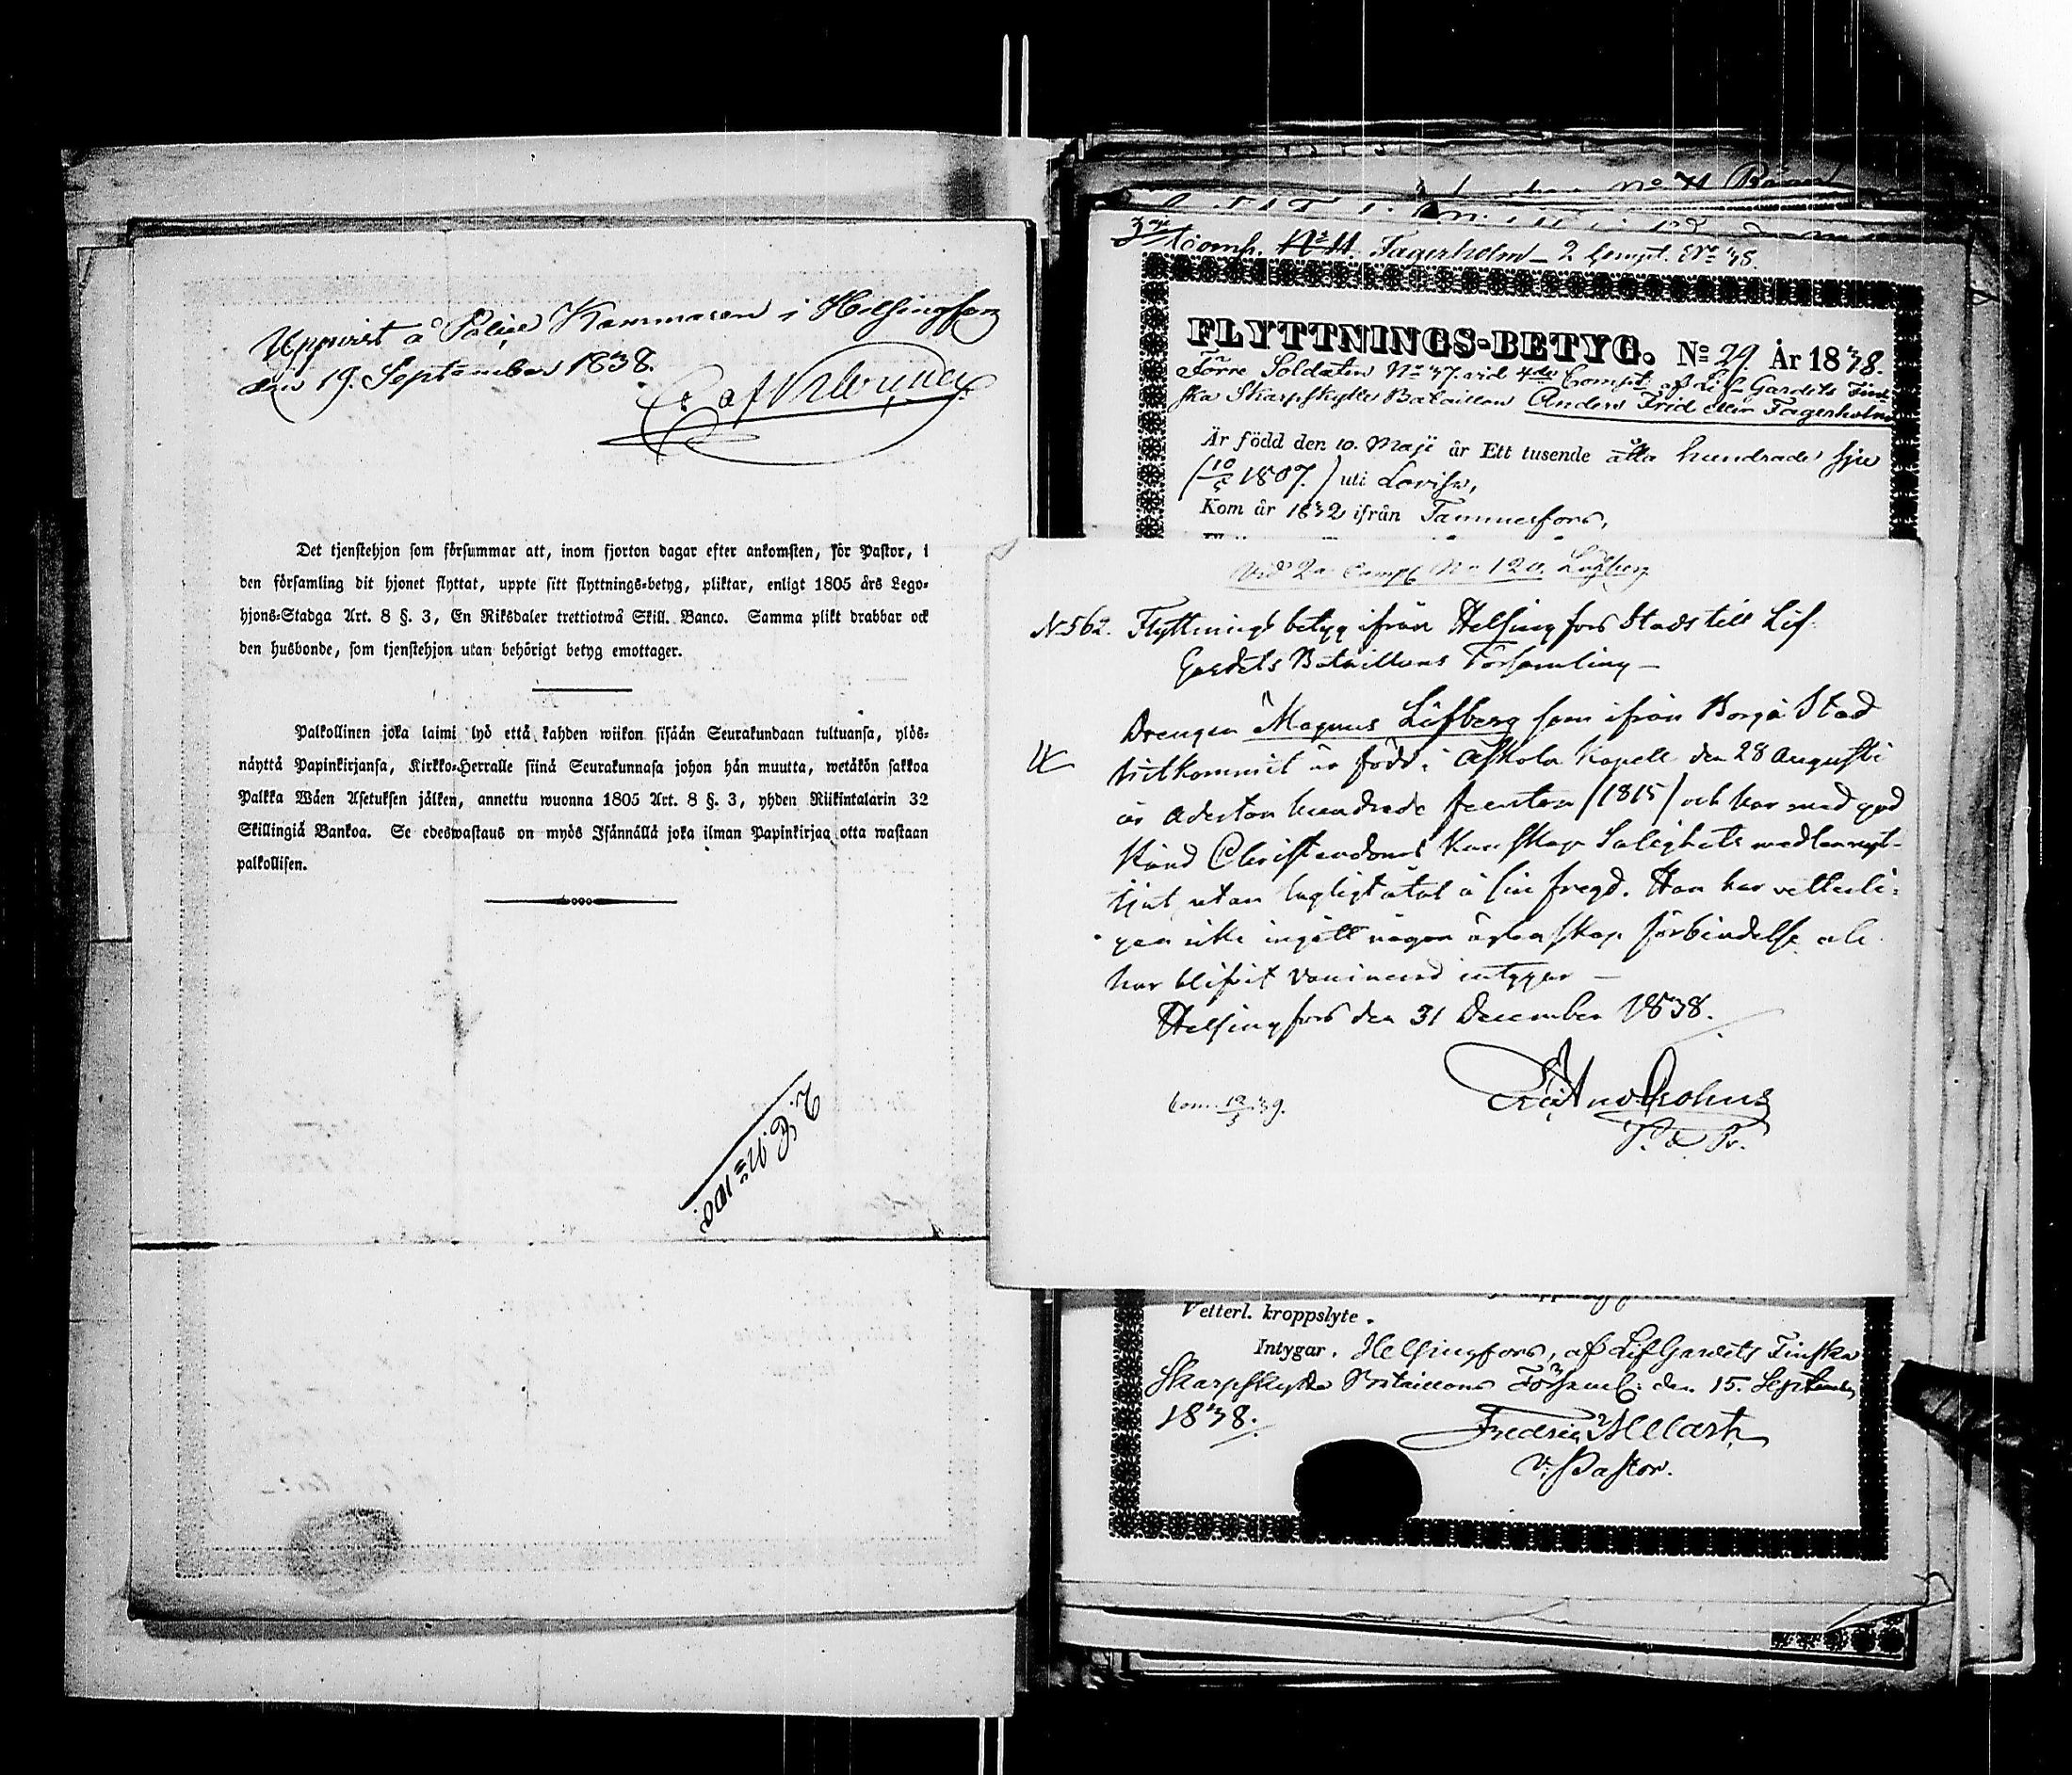 Uppvist å Polise Kammaren i Helsingfors
den 19. September 1838.
C. af
Det tjenstehjon som försummar att, inom fjorton dagar efter ankomsten, för Pastor, i
den församling dit hjonet flyttat, uppte sitt flyttnings-betyg, pliktar, enligt 1805 års Lego-
hjons-Stadga Art. 8 §. 3, En Riksdaler trettiotwå Skill. Banco. Samma plikt drabbar ock
den husbonde, som tjenstehjon utan behörigt betyg emottager.
Palkollinen joka laimi lyö että kahden wiikon sisään Seurakundaan tultuansa, ylös-
näyttä Papinkirjansa, Kirkko-Herralle siinä Seurakunnasa johon hän muutta, wetäkön sakkoa
Palkka Wäen Asetuksen jälken, annettu wuonna 1805 Art. 8 §. 3, yhden Riikintalarin 32
Skillingiä Bankoa. Se edeswastaus on myös Isännällä joka ilman Papinkirjaa otta wastaan
palkollisen.
No 100.
No 71
3dje Comp. No 11. Fagerholm - 2 Compt. No 78.
FLYTTNINGS-BETYG. No 29. År 1838.
Förre Soldaten No 37. vid 4de Compt. af Lif-Gardets Fin-
ska Skarpskytte Bataillon Anders Frid eller Fagerholm
Är född den 10. Maji år Ett tusende åtta hundrade sju
(10/5 1807.) uti Lovisa,
Kom år 1832 ifrån Tammerfors,
Vid 2a Comp. No 120. Löfberg
N 562. Flyttnings betyg ifrån Helsingfors Stads till Lif-
Gardets Bataillons Församling —
Drengen Magnus Löfberg som ifrån Borgå Stad
hitkommit är född i Askola Kapell den 28 Augusti
år Aderton hundrade femton (1815) och har med god
Christendoms Kunskap Salighets medlen nytt-
jat, utan lagligt åtal å sin fregd. Han har vetterli-
gen icke ingått någon ägtenskaps förbindelse och
har blifvit vaccinerad intygar —
Helsingfors den 31 December 1838.
Kom. 12/5 39.
Vetterl. kroppslyte.
Intygar. Helsingfors, af Lif Gardets Finska
Skarpskytte Bataillons Församl: den 15. September
1838.
Fredric Mellarth
V. Pastor.